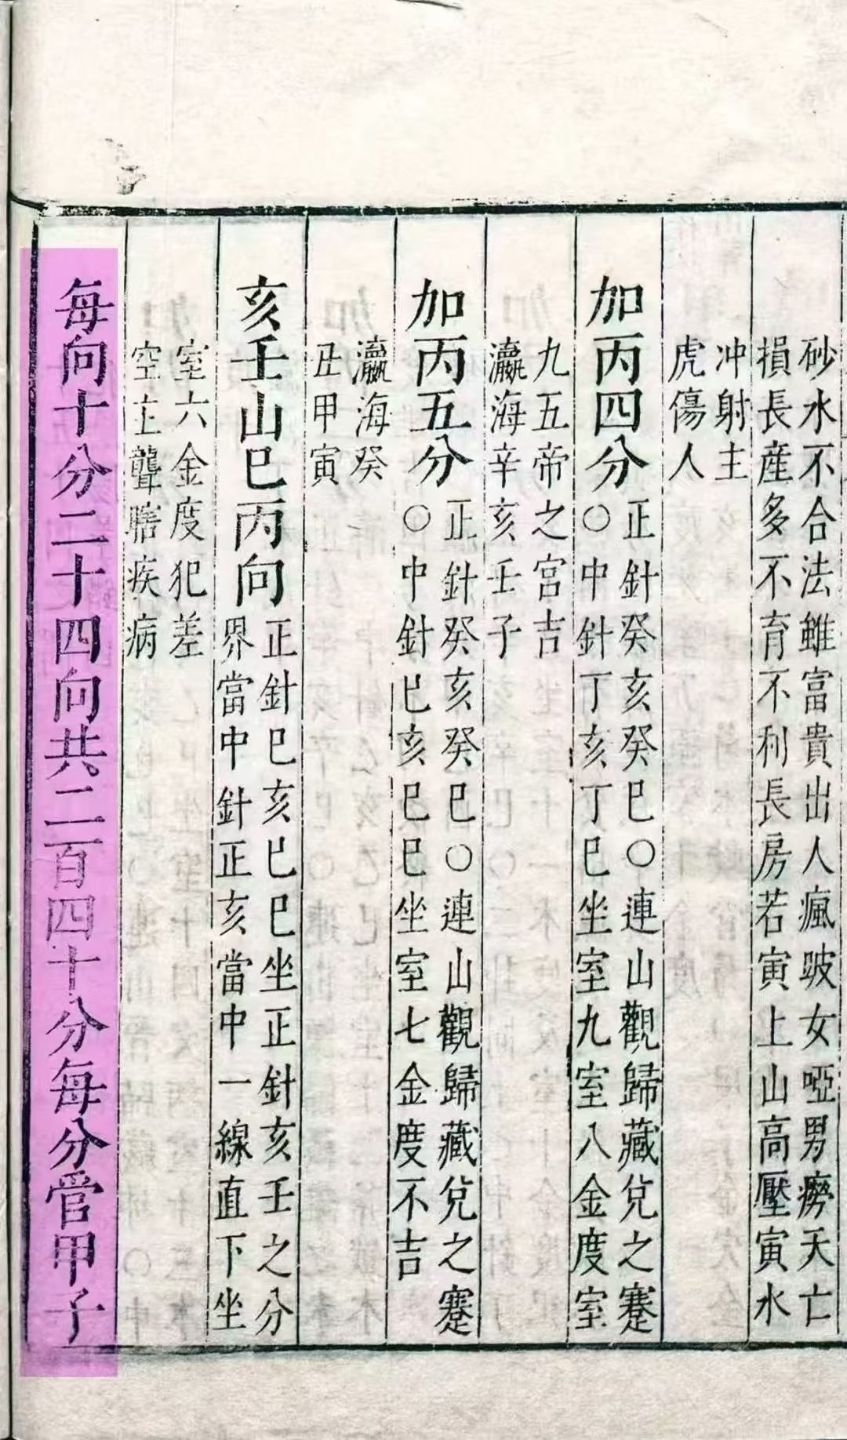 砂水不合法雖富貴出人瘋跛女啞男癆夭亡
損長産多不育不利長房若寅上山高壓寅水
冲射主
虎傷人
加丙四分
正針癸亥癸巳○連山觀歸藏兌之蹇
○中針丁亥丁巳坐室九室八金度室
九五帝之宮吉
瀛海辛亥壬子
加丙五分
正針癸亥癸巳○連山觀歸藏兌之蹇
○中針巳亥巳巳坐室七金度不吉
瀛海癸
丑甲寅
亥壬山巳丙向
正針巳亥巳巳坐正針亥壬之分
界當中針正亥當中一線直下坐
室六金度犯差
空主聾瞎疾病
每向十分二十四向共二百四十分每分管甲子